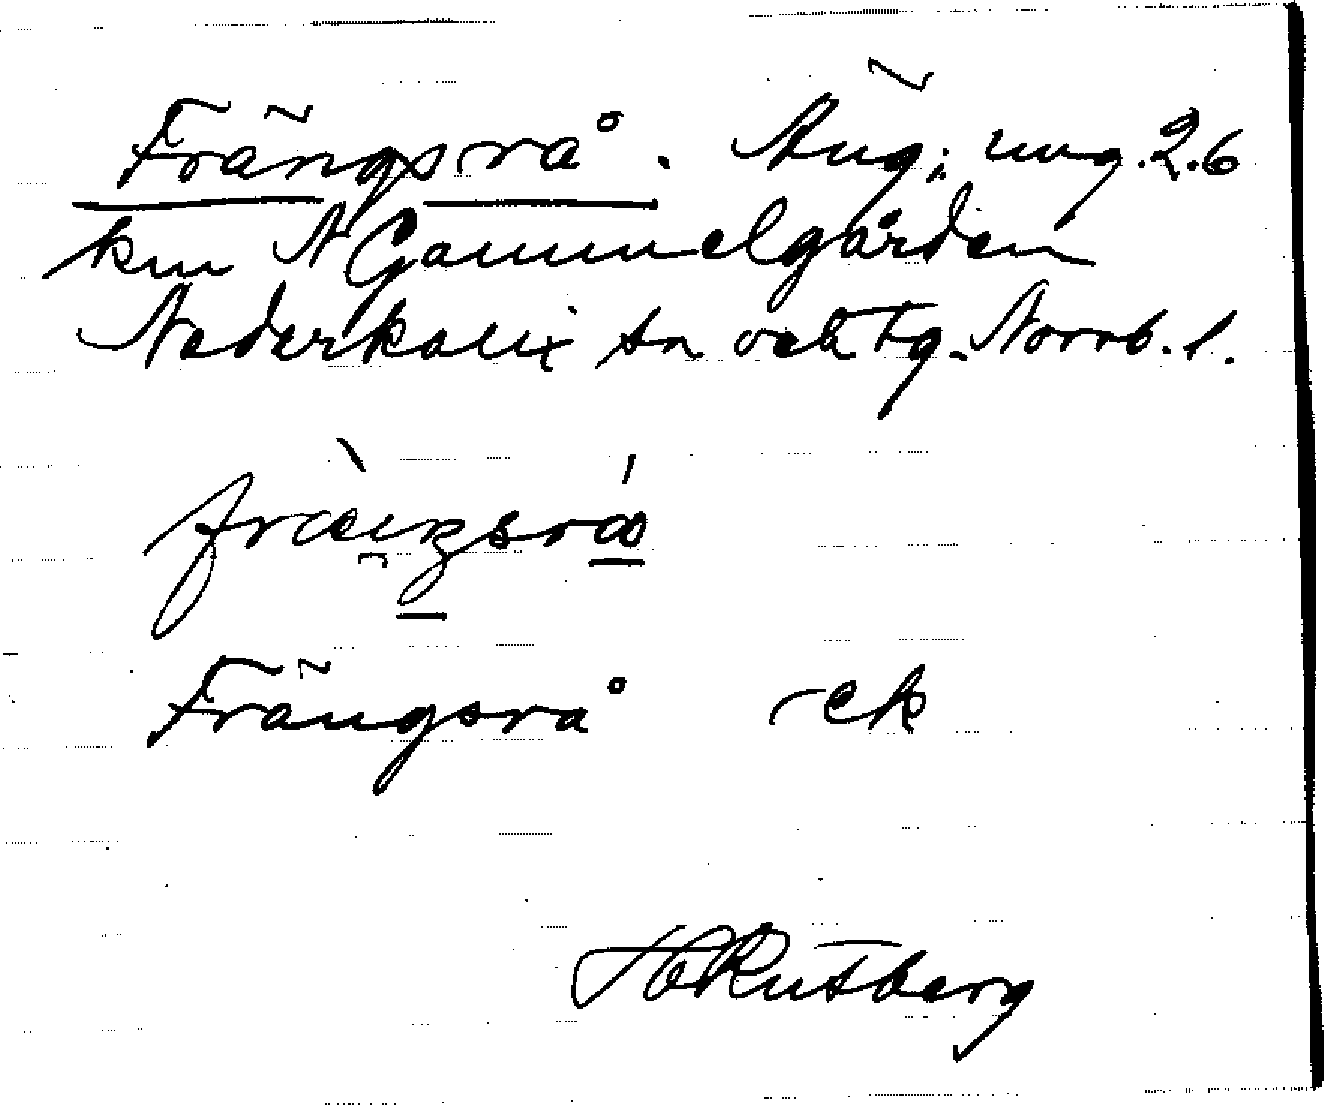 Frängsrå. Äng; ung. 2.6
km N Gammelgården
Nederkalix sn och tg. Norrb. l.
Frängsrå -ek
H Rutberg